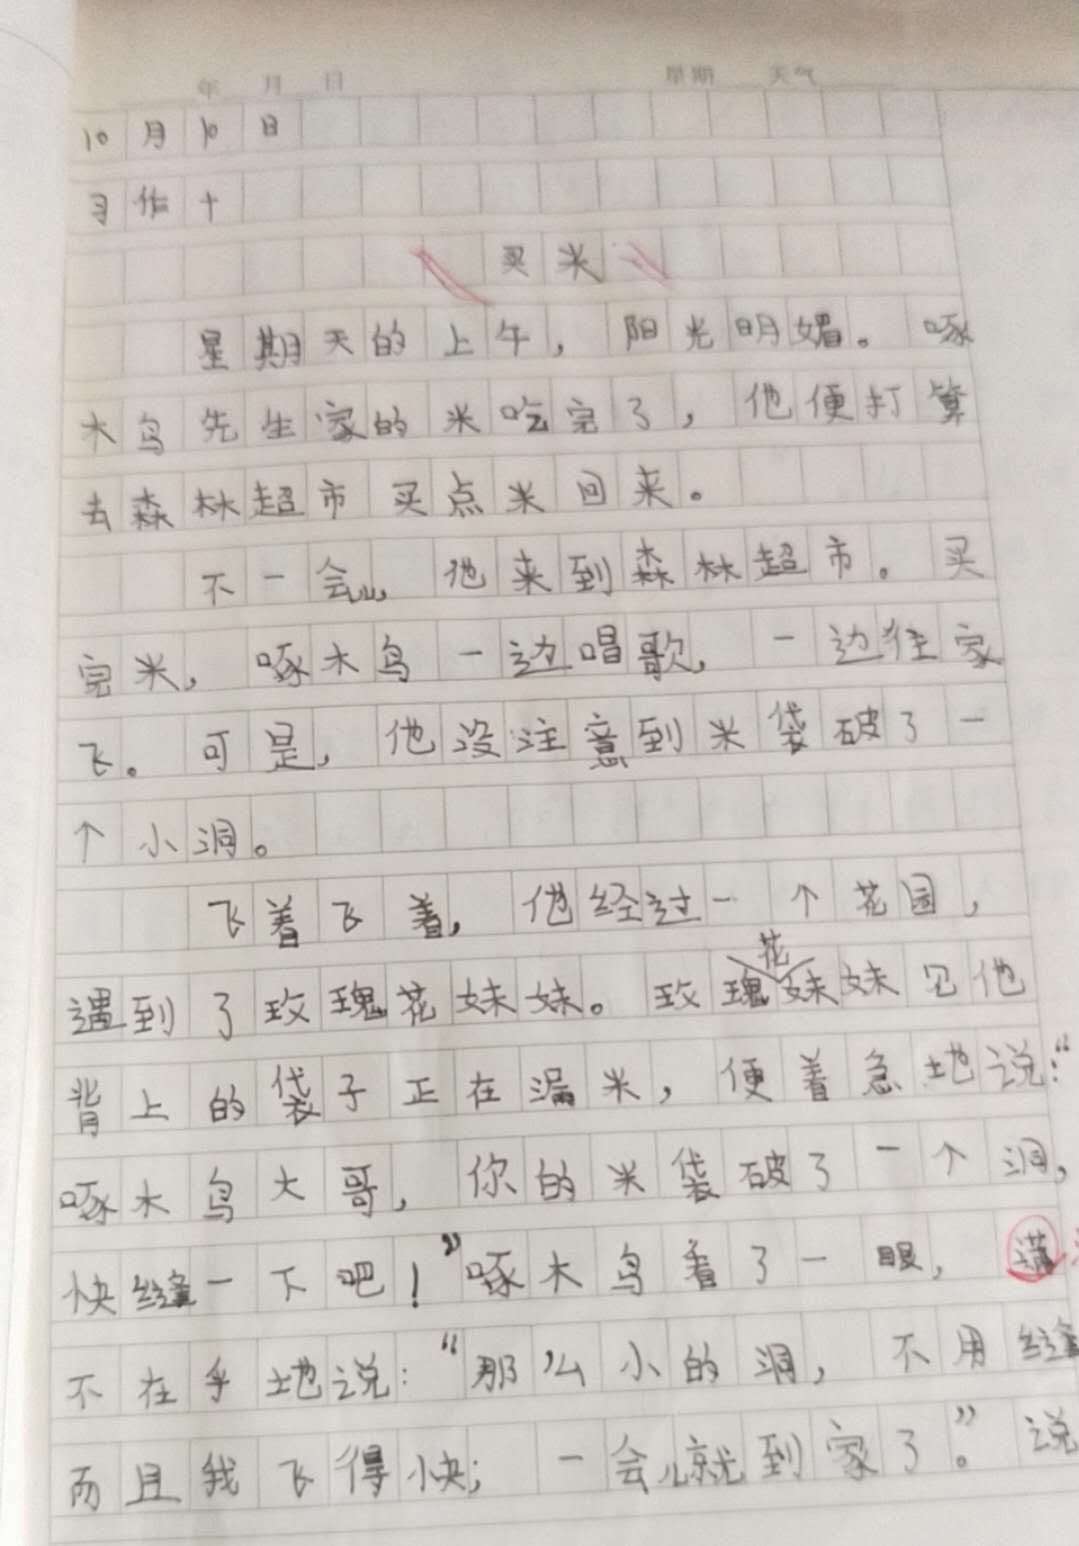 年 月 日 星期 天气
10月10日
习作十
买米
星期天的上午，阳光明媚。啄
木鸟先生家的米吃完了，他便打算
去森林超市买点米回来。
不一会儿，他来到森林超市。买
完米，啄木鸟一边唱歌，一边往家
飞。可是，他没注意到米袋破了一
个小洞。
飞着飞着，他经过一个花园，
花
遇到了玫瑰花妹妹。玫瑰妹妹见他
背上的袋子正在漏米，便着急地说：“
啄木鸟大哥，你的米袋破了一个洞，
快缝一下吧！”啄木鸟看了一眼，满
不在乎地说：“那么小的洞，不用缝
而且我飞得快；一会儿就到家了。”说